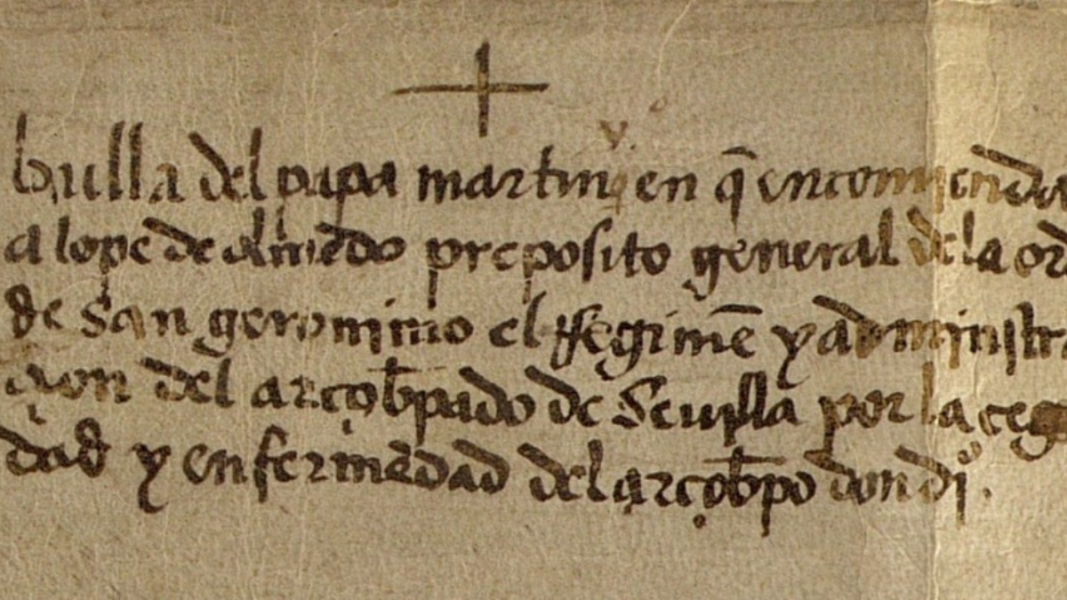 v.
bulla del papa martin en q̄ encomienda
a lope de olmedo preposito general de la ord
de san geronimo el rregimē y administra
çion del arçob̄pado de Seuilla por la ceg
dad y enfermedad del arçob̄po don diº.